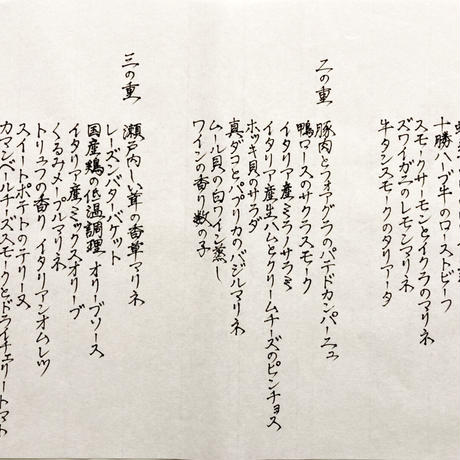 十勝ハーブ牛のローストビーフ
スモークサーモンとイクラのマリネ
ズワイガニのレモンマリネ
牛タンスモークのタリアータ
二の重
豚肉とフォアグラのパテドカンパーニュ
鴨ロースのサクラスモーク
イタリア産ミラノサラミ
イタリア産生ハムとクリームチーズのピンチョス
ホッキ貝のサラダ
真ダコとパプリカのバジルマリネ
ムール貝の白ワイン蒸し
ワインの香り数の子
三の重
瀬戸内しい茸の香草マリネ
レーズンバターバケット
国産鶏の低温調理 オリーブソース
イタリア産ミックスオリーブ
くるみメープルマリネ
トリュフの香り イタリアンオムレツ
スイートポテトのテリーヌ
カマンベールチーズスモークとドライチェリートマト